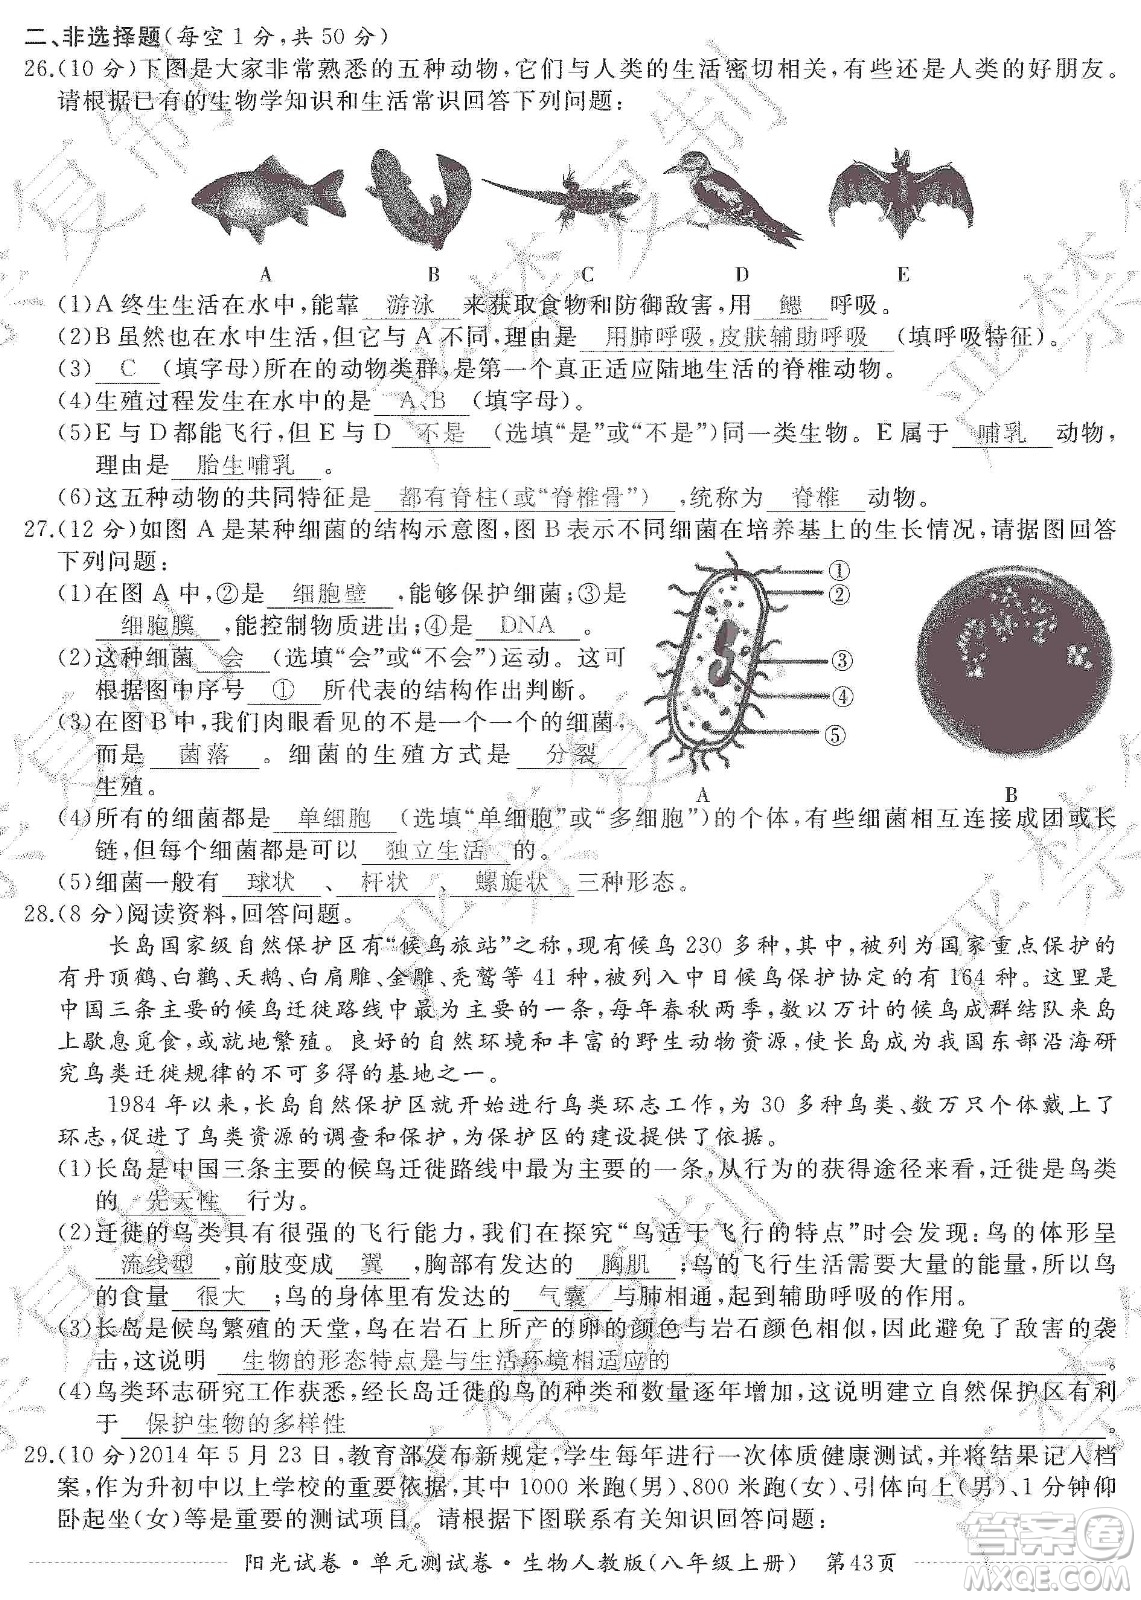 二、非选择题(每空1分,共50分)
26.(10分)下图是大家非常熟悉的五种动物,它们与人类的生活密切相关,有些还是人类的好朋友。
请根据已有的生物学知识和生活常识回答下列问题:
A B C D E
(1)A终生生活在水中,能靠 游泳 来获取食物和防御敌害,用 鳃 呼吸。
(2)B虽然也在水中生活,但它与A不同,理由是 用肺呼吸,皮肤辅助呼吸 (填呼吸特征)。
(3) C (填字母)所在的动物类群,是第一个真正适应陆地生活的脊椎动物。
(4)生殖过程发生在水中的是 A、B (填字母)。
(5)E与D都能飞行,但E与D 不是 (选填“是”或“不是”)同一类生物。E属于 哺乳 动物,
理由是 胎生哺乳 。
(6)这五种动物的共同特征是 都有脊柱(或“脊椎骨”) ,统称为 脊椎 动物。
27.(12分)如图A是某种细菌的结构示意图,图B表示不同细菌在培养基上的生长情况,请据图回答
下列问题:
(1)在图A中,②是 细胞壁 ,能够保护细菌;③是
细胞膜 ,能控制物质进出;④是 DNA 。
(2)这种细菌 会 (选填“会”或“不会”)运动。这可
根据图中序号 ① 所代表的结构作出判断。
(3)在图B中,我们肉眼看见的不是一个一个的细菌,
而是 菌落 。细菌的生殖方式是 分裂
生殖。
①
②
③
④
⑤
A B
(4)所有的细菌都是 单细胞 (选填“单细胞”或“多细胞”)的个体,有些细菌相互连接成团或长
链,但每个细菌都是可以 独立生活 的。
(5)细菌一般有 球状 、 杆状 、 螺旋状 三种形态。
28.(8分)阅读资料,回答问题。
长岛国家级自然保护区有“候鸟旅站”之称,现有候鸟230多种,其中,被列为国家重点保护的
有丹顶鹤、白鹳、天鹅、白肩雕、金雕、秃鹫等41种,被列入中日候鸟保护协定的有164种。这里是
中国三条主要的候鸟迁徙路线中最主要的一条,每年春秋两季,数以万计的候鸟成群结队来岛
上歇息觅食,或就地繁殖。良好的自然环境和丰富的野生动物资源,使长岛成为我国东部沿海研
究鸟类迁徙规律的不可多得的基地之一。
1984年以来,长岛自然保护区就开始进行鸟类环志工作,为30多种鸟类、数万只个体戴上了
环志,促进了鸟类资源的调查和保护,为保护区的建设提供了依据。
(1)长岛是中国三条主要的候鸟迁徙路线中最主要的一条,从行为的获得途径来看,迁徙是鸟类
的 先天性 行为。
(2)迁徙的鸟类具有很强的飞行能力,我们在探究“鸟适于飞行的特点”时会发现:鸟的体形呈
流线型 ,前肢变成 翼 ,胸部有发达的 胸肌 ;鸟的飞行生活需要大量的能量,鸟
的食量 很大 ;鸟的身体里有发达的 气囊 与肺相通,起到辅助呼吸的作用。
(3)长岛是候鸟繁殖的天堂,鸟在岩石上所产的卵的颜色与岩石颜色相似,因此避免了敌害的袭
击,这说明 生物的形态特点是与生活环境相适应的 。
(4)鸟类环志研究工作获悉,经长岛迁徙的鸟的种类和数量逐年增加,这说明建立自然保护区有利
于 保护生物的多样性 。
29.(10分)2014年5月23日,教育部发布新规定,学生每年进行一次体质健康测试,并将结果记入档
案,作为升初中以上学校的重要依据,其中1000米跑(男)、800米跑(女)、引体向上(男)、1分钟仰
卧起坐(女)等是重要的测试项目。请根据下图联系有关知识回答问题:
阳光试卷·单元测试卷·生物人教版(八年级上册) 第43页
答案卷
MXQE.COM
复制
严禁复制
严禁复制
严禁
复制
严禁复制
严禁